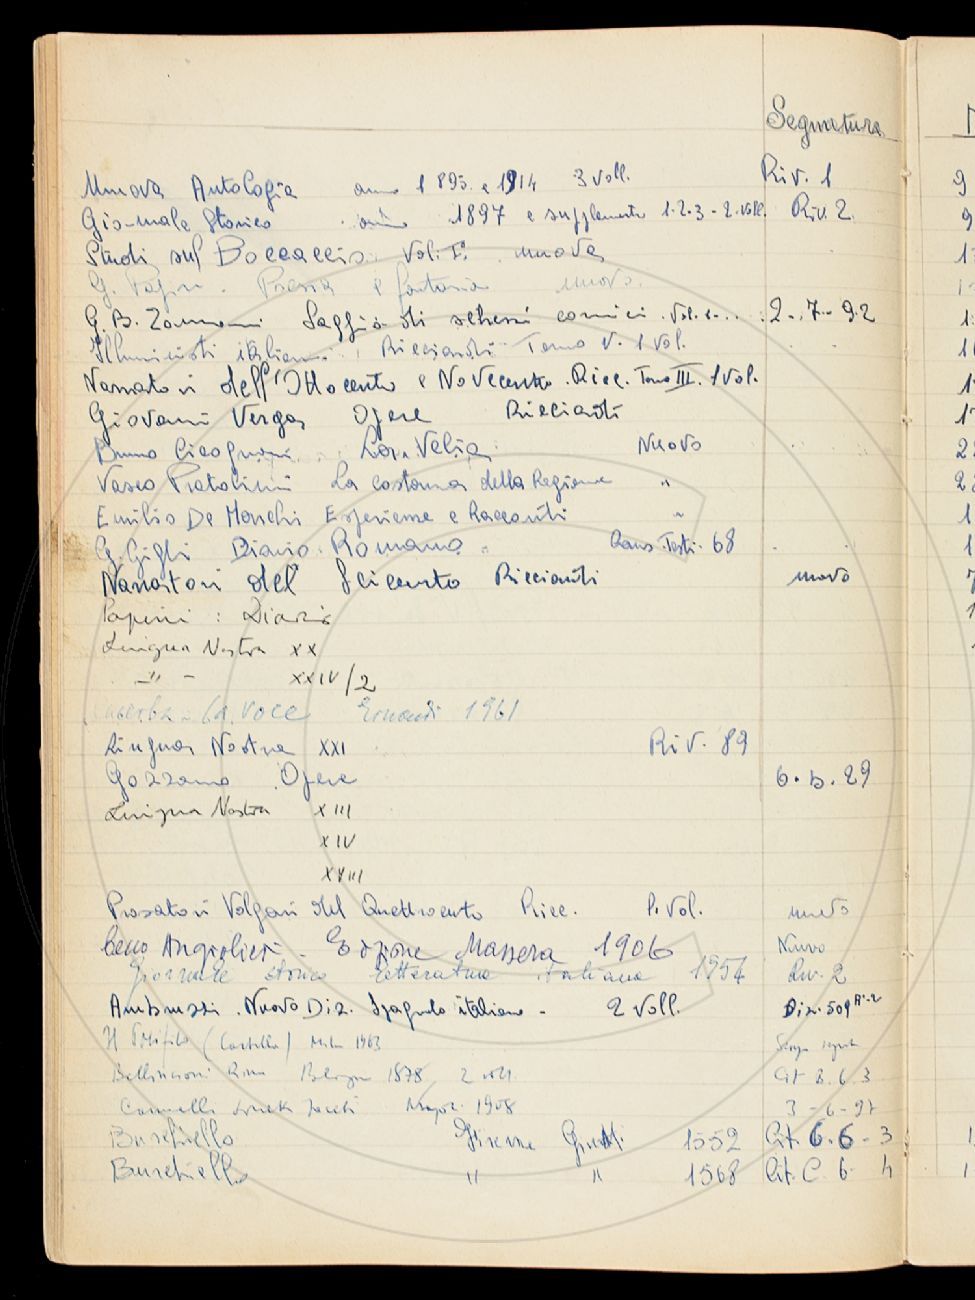 Segnatura
Nuova Antologia anno 1895 e 1914 3 voll. Riv. 1
Giornale Storico anno 1897 e supplemento 1-2-3 - 2 voll. Riv. 2
Studi sul Boccaccio Vol. I° nuova
G. Papini . Poesia e fantasia nuovo.
G. B. Zannoni Saggio di scherzi comici . Vol. 2-7-92
Illuministi italiani Ricciardi Tomo V. 1 vol.
Narratori dell'Ottocento e Novecento . Ricc. Tomo III. 1 Vol.
Giovanni Verga Opere Ricciardi
Bruno Cicognani La Velia Nuovo
Vasco Pratolini La costanza della Ragione "
Emilio De Marchi Esperienze e Racconti "
G. Gigli Diario Romano 68
Narratori del Seicento Ricciardi nuovo
Papini : Diario
Lingua Nostra XX
" - XXIV/2
Lacerba - La Voce Einaudi 1961
Lingua Nostra XXI Riv. 89
Gozzano Opere 6. b. 29
Lingua Nostra XIII
XIV
XVIII
Prosatori Volgari del Quattrocento Ricc. 1. Vol. nuovo
Cecco Angiolieri - Edizione Massera 1906 Nuovo
Giornale storico Letteratura italiana 1954 Riv. 2
Ambruzzi . Nuovo Diz. Spagnolo italiano - 2 Voll. Diz. 509
Il (Castello) 1963
Bellincioni Rime Bologna 1878 2 voll. Cit B. 6 3
1908 3-6-97
Burchiello Giunti 1552 Cit. 6. 6 - 3
Burchiello " " 1568 Cit. C. 6 4